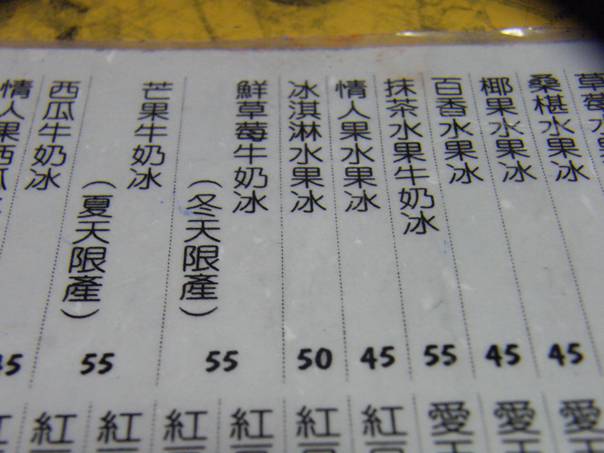 草莓水
桑椹水果冰
椰果水果冰
45
百香水果冰
45
抹茶水果牛奶冰
55
情人果水果冰
45
冰淇淋水果冰
50
鮮草莓牛奶冰
(冬天限產)
55
芒果牛奶冰
(夏天限產)
55
西瓜牛奶冰
情人果西瓜
愛
愛
愛
紅
紅
紅
紅
紅
紅